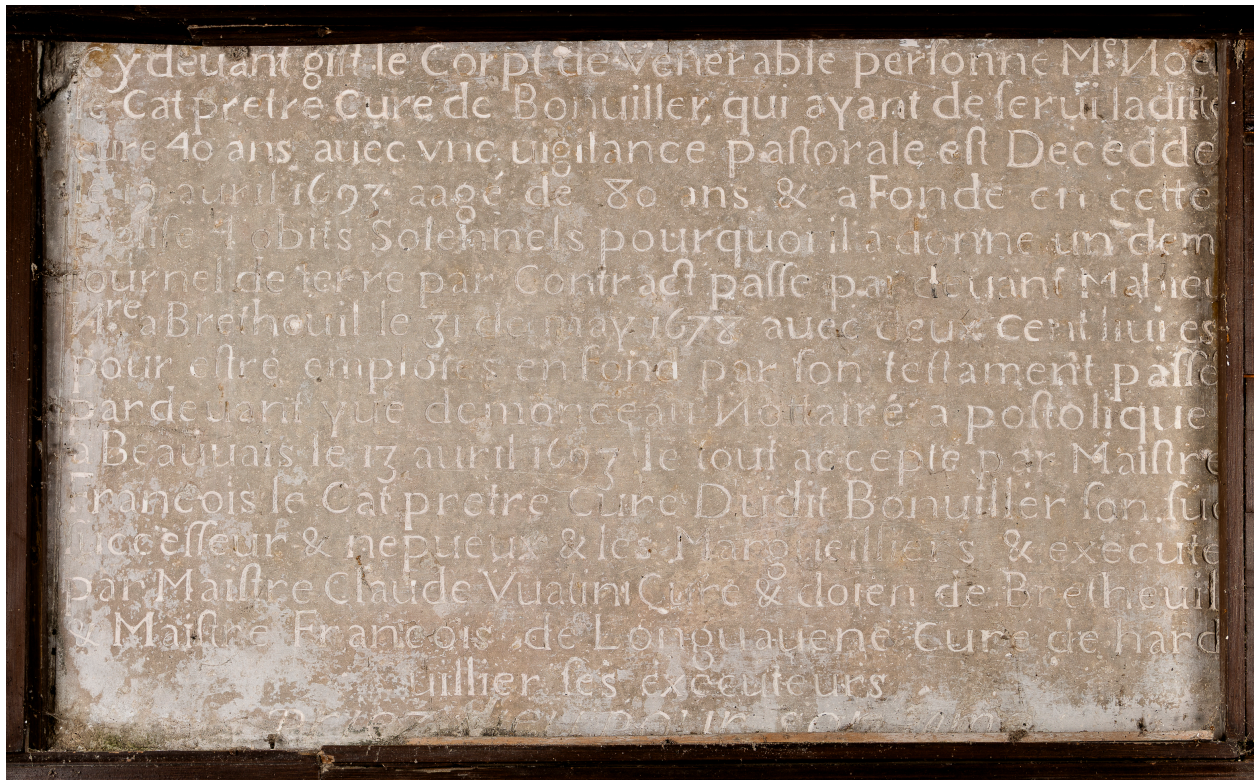 Cy deuant gist le Corpt de venerable personne Mᵉ Noel
le Cat pretre Cure de Bonuiller, qui ayant deserui laditte
cure 40 ans auec vne uigilance pastorale est Decedde
le 19 auril 1693 aagé de 80 ans & a Fondé en cette
eglise 4 obits Solennels pourquoi il a donne un dem
iournel de terre par Contract passe par deuant Mahieu
Nʳᵉ a Bretheuil le 31 de may 1678 auec deux cent liures
pour estre emploiees en fond par son testament passé
pardeuant yue demonceau Nottairé apostolique
a Beauuais le 13 auril 1693 le tout accepte par Maistre
Francois le Cat pretre Cure Dudit Bonuiller son suc
successeur & nepueux & les Margueilliers & execute
par Maistre Claude Vuatini Curé & doien de Bretheuil
& Maistre Francois de Longuauene Cure de hard
uillier ses executeurs